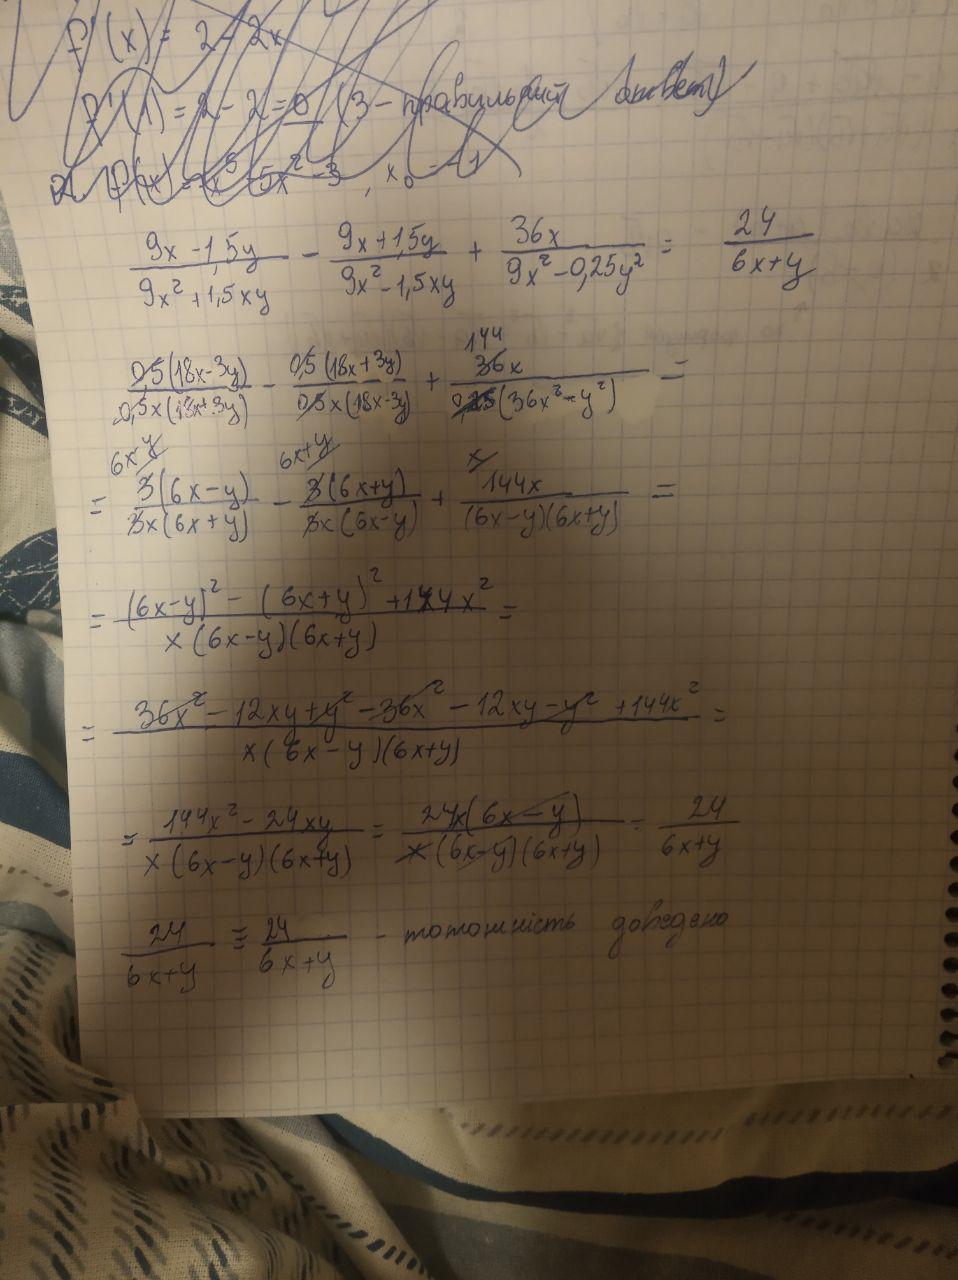 f'(x) = 2 - 2x
f'(1) = 2 - 2 = 0 (3 - правильный ответ)
, x₀ = -1
(9x - 1,5y)/(9x² + 1,5xy) - (9x + 1,5y)/(9x² - 1,5xy) + 36x/(9x² - 0,25y²) = 24/(6x+y)
144
0,5(18x-3y)/0,5x(18x+3y) - 0,5(18x+3y)/0,5x(18x-3y) + 36x/0,25(36x² - y²) =
6x-y 6x+y x
= 3(6x-y)/3x(6x+y) - 3(6x+y)/3x(6x-y) + 144x/(6x-y)(6x+y) =
= ((6x-y)² - (6x+y)² + 144x²)/x(6x-y)(6x+y) =
= (36x² - 12xy + y² - 36x² - 12xy - y² + 144x²)/x(6x-y)(6x+y) =
= (144x² - 24xy)/x(6x-y)(6x+y) = 24x(6x-y)/x(6x-y)(6x+y) = 24/(6x+y)
24/(6x+y) ≡ 24/(6x+y) - тотожність доведено